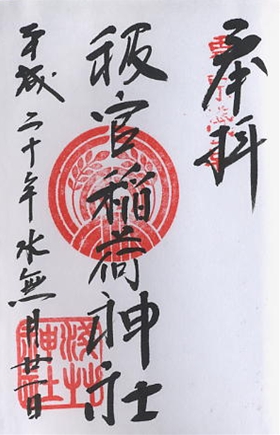 奉拝
被官稲荷神社
平成二十年水無月廿一日
淺草
神社